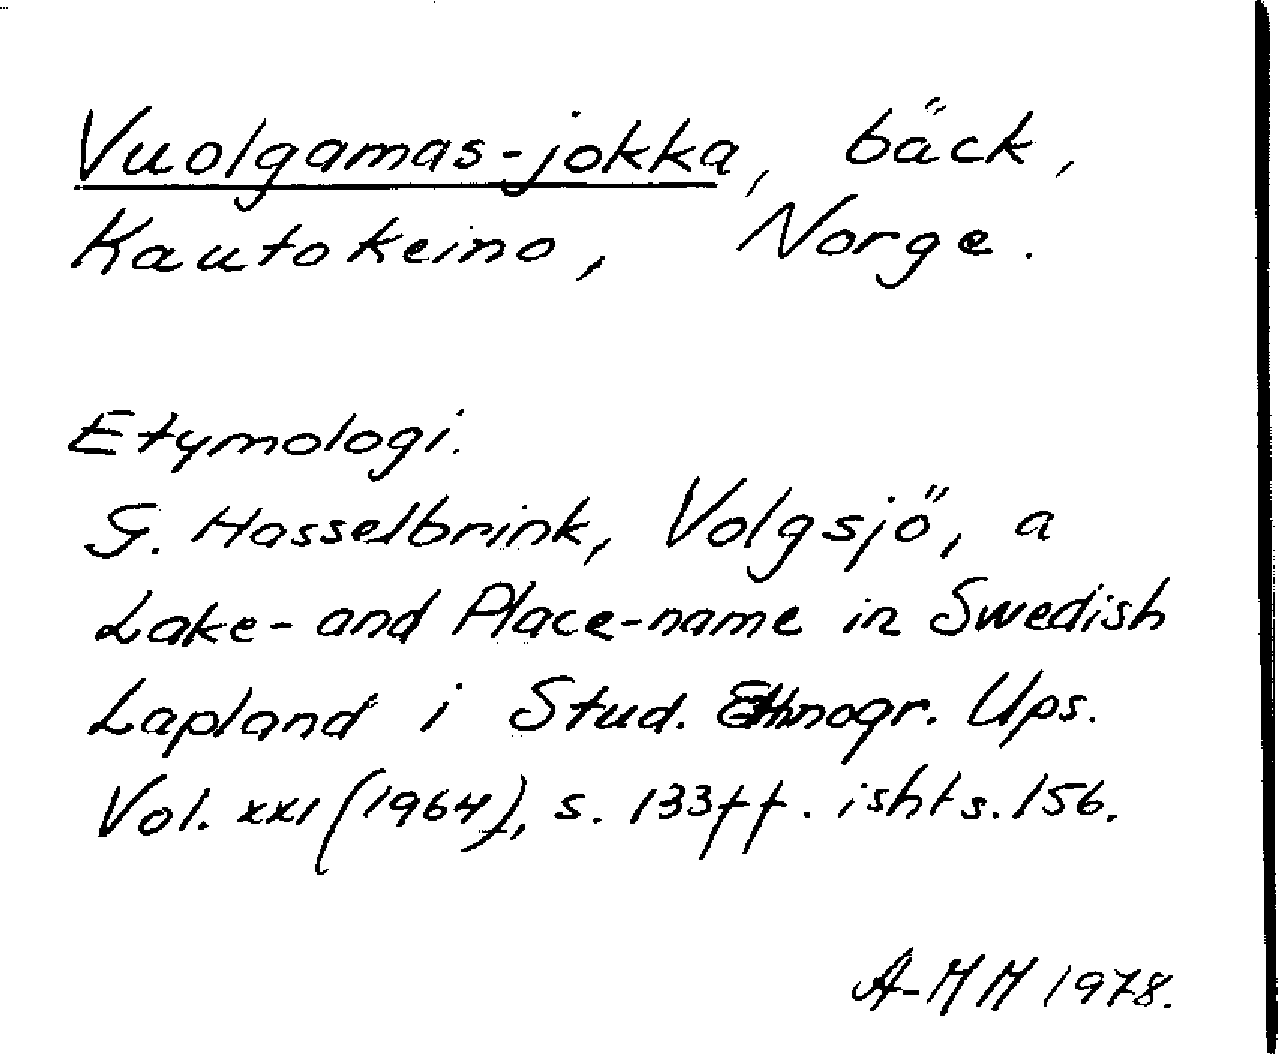 Vuolgamas-jokka, bäck,
Kautokeino, Norge.
Etymologi.
G. Hasselbrink, Volgsjö, a
Lake- and Place-name in Swedish
Lapland i Stud. Ethnogr. Ups.
Vol. XXI (1964), s. 133ff. isht s. 156.
A-MM 1978.